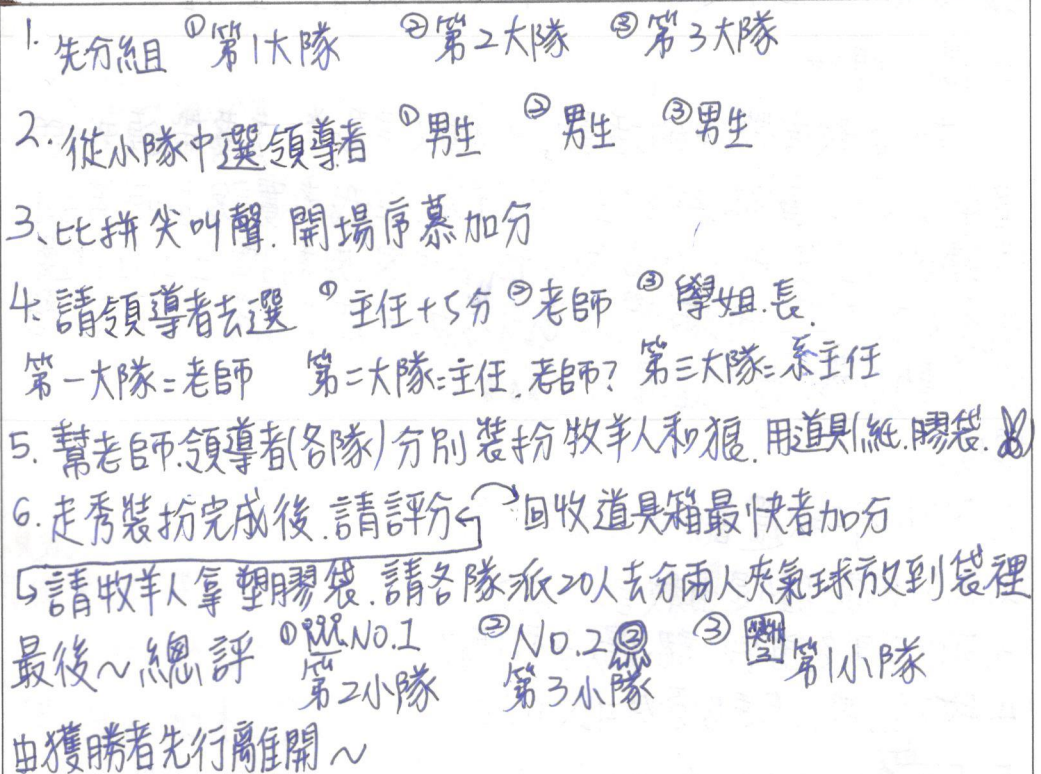 1. 先分組 ①第1大隊 ②第2大隊 ③第3大隊
2. 從小隊中選領導者 ①男生 ②男生 ③男生
3、比拼尖叫聲.開場序慕加分
4. 請領導者去選 ①主任+5分 ②老師 ③學姐.長.
第一大隊=老師 第二大隊=主任.老師? 第三大隊=系主任
5. 幫老師.領導者(各隊)分別裝扮牧羊人和狼.用道具(紙.膠袋.
6. 走秀裝扮完成後.請評分 回收道具箱最快者加分
請牧羊人拿塑膠袋.請各隊派20人去分兩人夾氣球放到袋裡
最後~總評 ① NO.1 ② NO.2 ② ③
第2小隊 第3小隊 第1小隊
由獲勝者先行離開~